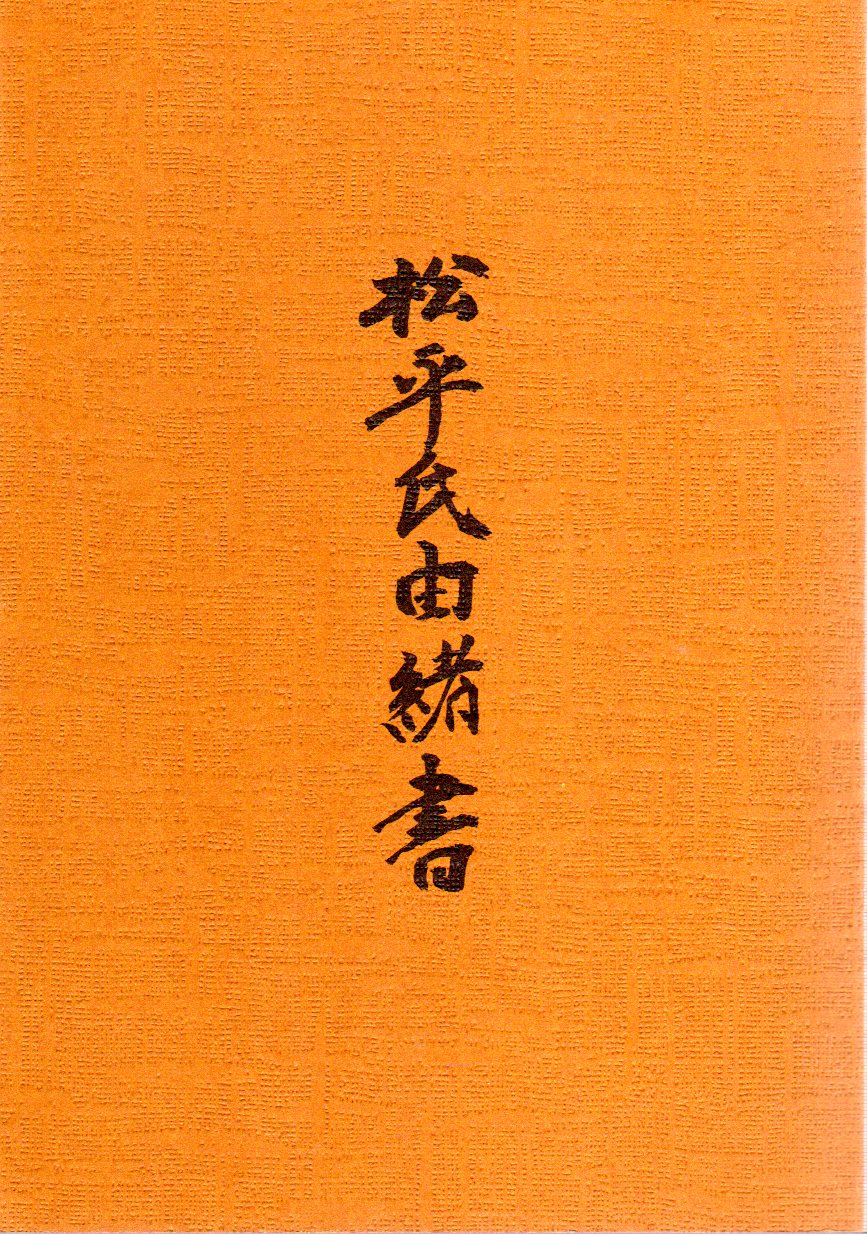 松平氏由緒書